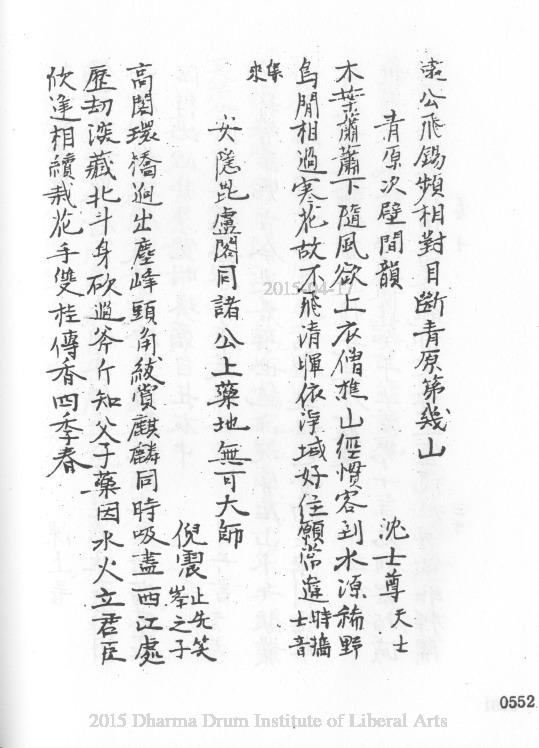 遠公飛錫頻相對目斷青原第幾山
青原次壁間韻
沈士尊天士
木葉蕭蕭下隨風欲上衣僧樵山徑慣客到水源稀野
鳥閒相過寒花故不飛清暉依淨域好住願常違時牆士音
集來
安隱毘盧閣同諸公上藥地無可大師
倪震止先笑峯之子
高閣環橋迥出塵峰頭角綾賞麒麟同時吸盡西江處
歷劫深藏北斗身砍過斧斤知父子藥因水火立君臣
欣逢相續栽花手雙桂傳香四季春
2015-04-17
0552
2015 Dharma Drum Institute of Liberal Arts